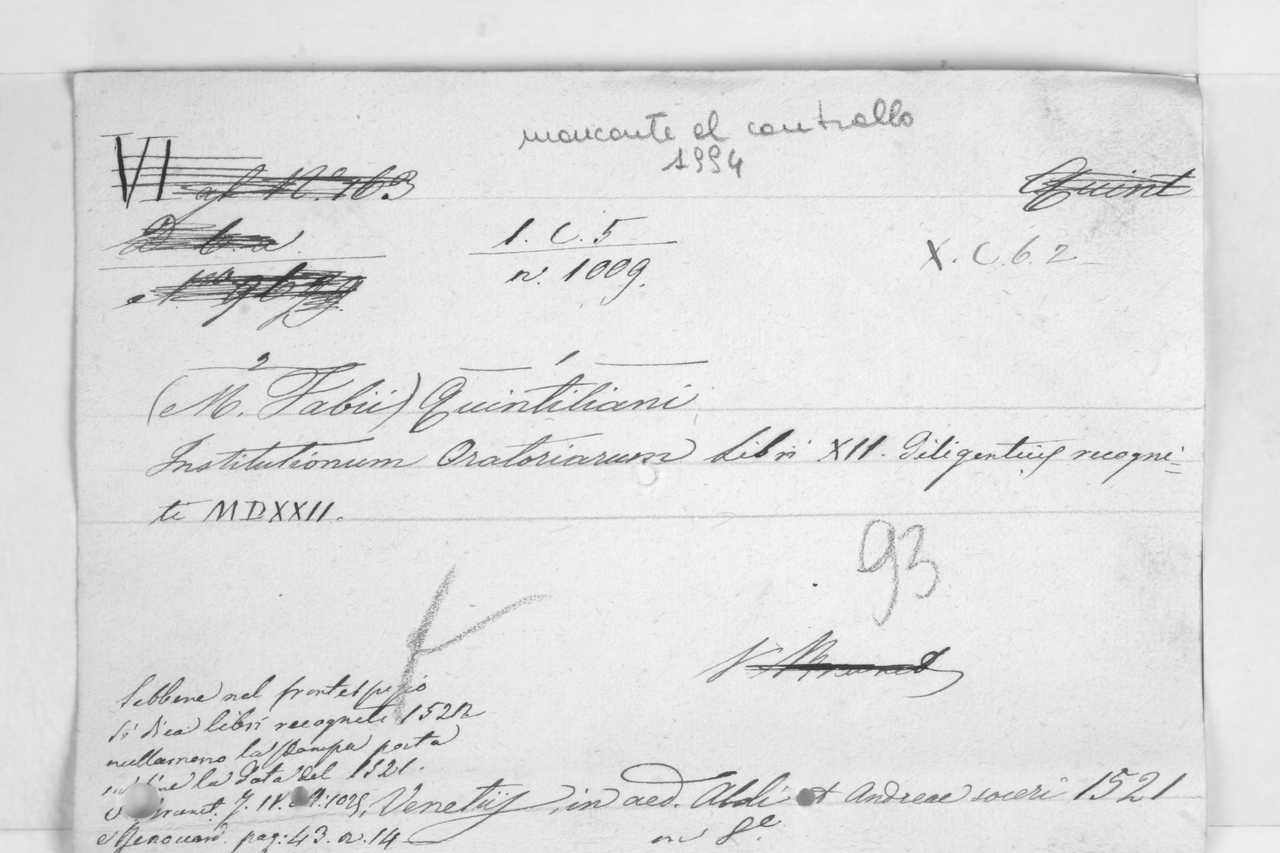 mancante al controllo
1994
VI
al N.° 163
Quint
1. C. 5
n. 1009.
X. C. 6. 2
2 1
(M. Fabii) Quintiliani
Institutionum Oratoriarum Libri XII. Diligentius recogni=
ti MDXXII.
93
V. Brunet
Sebbene nel frontespizio
si dica libri recogniti 1522
nullameno la stampa porta
in fine la data del 1521.
Brunet.
e Renouard. pag: 43. n. 14
Venetiis, in aed. Aldi et Andreae soceri 1521
in 8.°